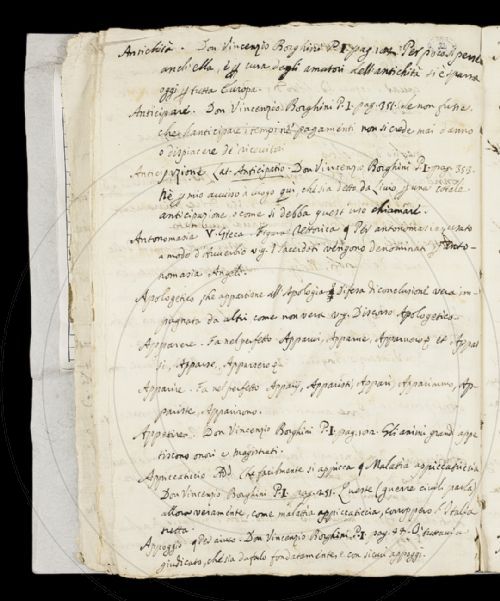 Antichità. Don Vincenzio Borghini P. I. pag. Per poco si pense
anch'ella, è cura degli amatori dell'antichità si è sparsa
oggi tutta Europa.
Anticipare. Don Vincenzio Borghini P. I. pag. 351. Se non fusse
che l'anticipare i tempi ne' pagamenti non si cede mai danno
o dispiacere de'
Anticipazione Lat. Anticipatio. Don Vincenzio Borghini P. I. pag. 353.
Nè mio avviso à luogo qui, che sia detto da Livio una cotale
anticipazione, o come si debba quest'uso chiamare.
Antonomasia V. Greca. Figura Rettorica Per antonomasia usato
a modo d'Avverbio v.g. I Sacerdoti vengono denominati Anto-
nomasia Angeli.
Apologetico, che appartiene all'Apologia Difesa di conclusione vera im-
pugnata da altri come non vera v.g. Discorso Apologetico.
Apparere. Fa nel perfetto Apparvi, Apparve, Apparvero et Appar-
si, Apparse, Apparsero
Apparire. Fa nel perfetto Apparij, Apparisti, Apparì, Apparimmo, Ap-
pariste, Apparirono.
Appetire. Don Vincenzio Borghini P. I. pag. 102. Gli animi grandi appe-
tiscono onori e magistrati.
Appiccaticcio Add. che facilmente si appicca Malattia appiccaticcia
Don Vincenzio Borghini P. I. pag. 251. Queste (guerre civili parla)
allora veramente, come malattia appiccaticcia, corroppero l'Italia
tutta.
Appoggio. Don Vincenzio Borghini P. I. pag. 94.
giudicato, che sia da farlo fondatamente, e con sicuri appoggi.